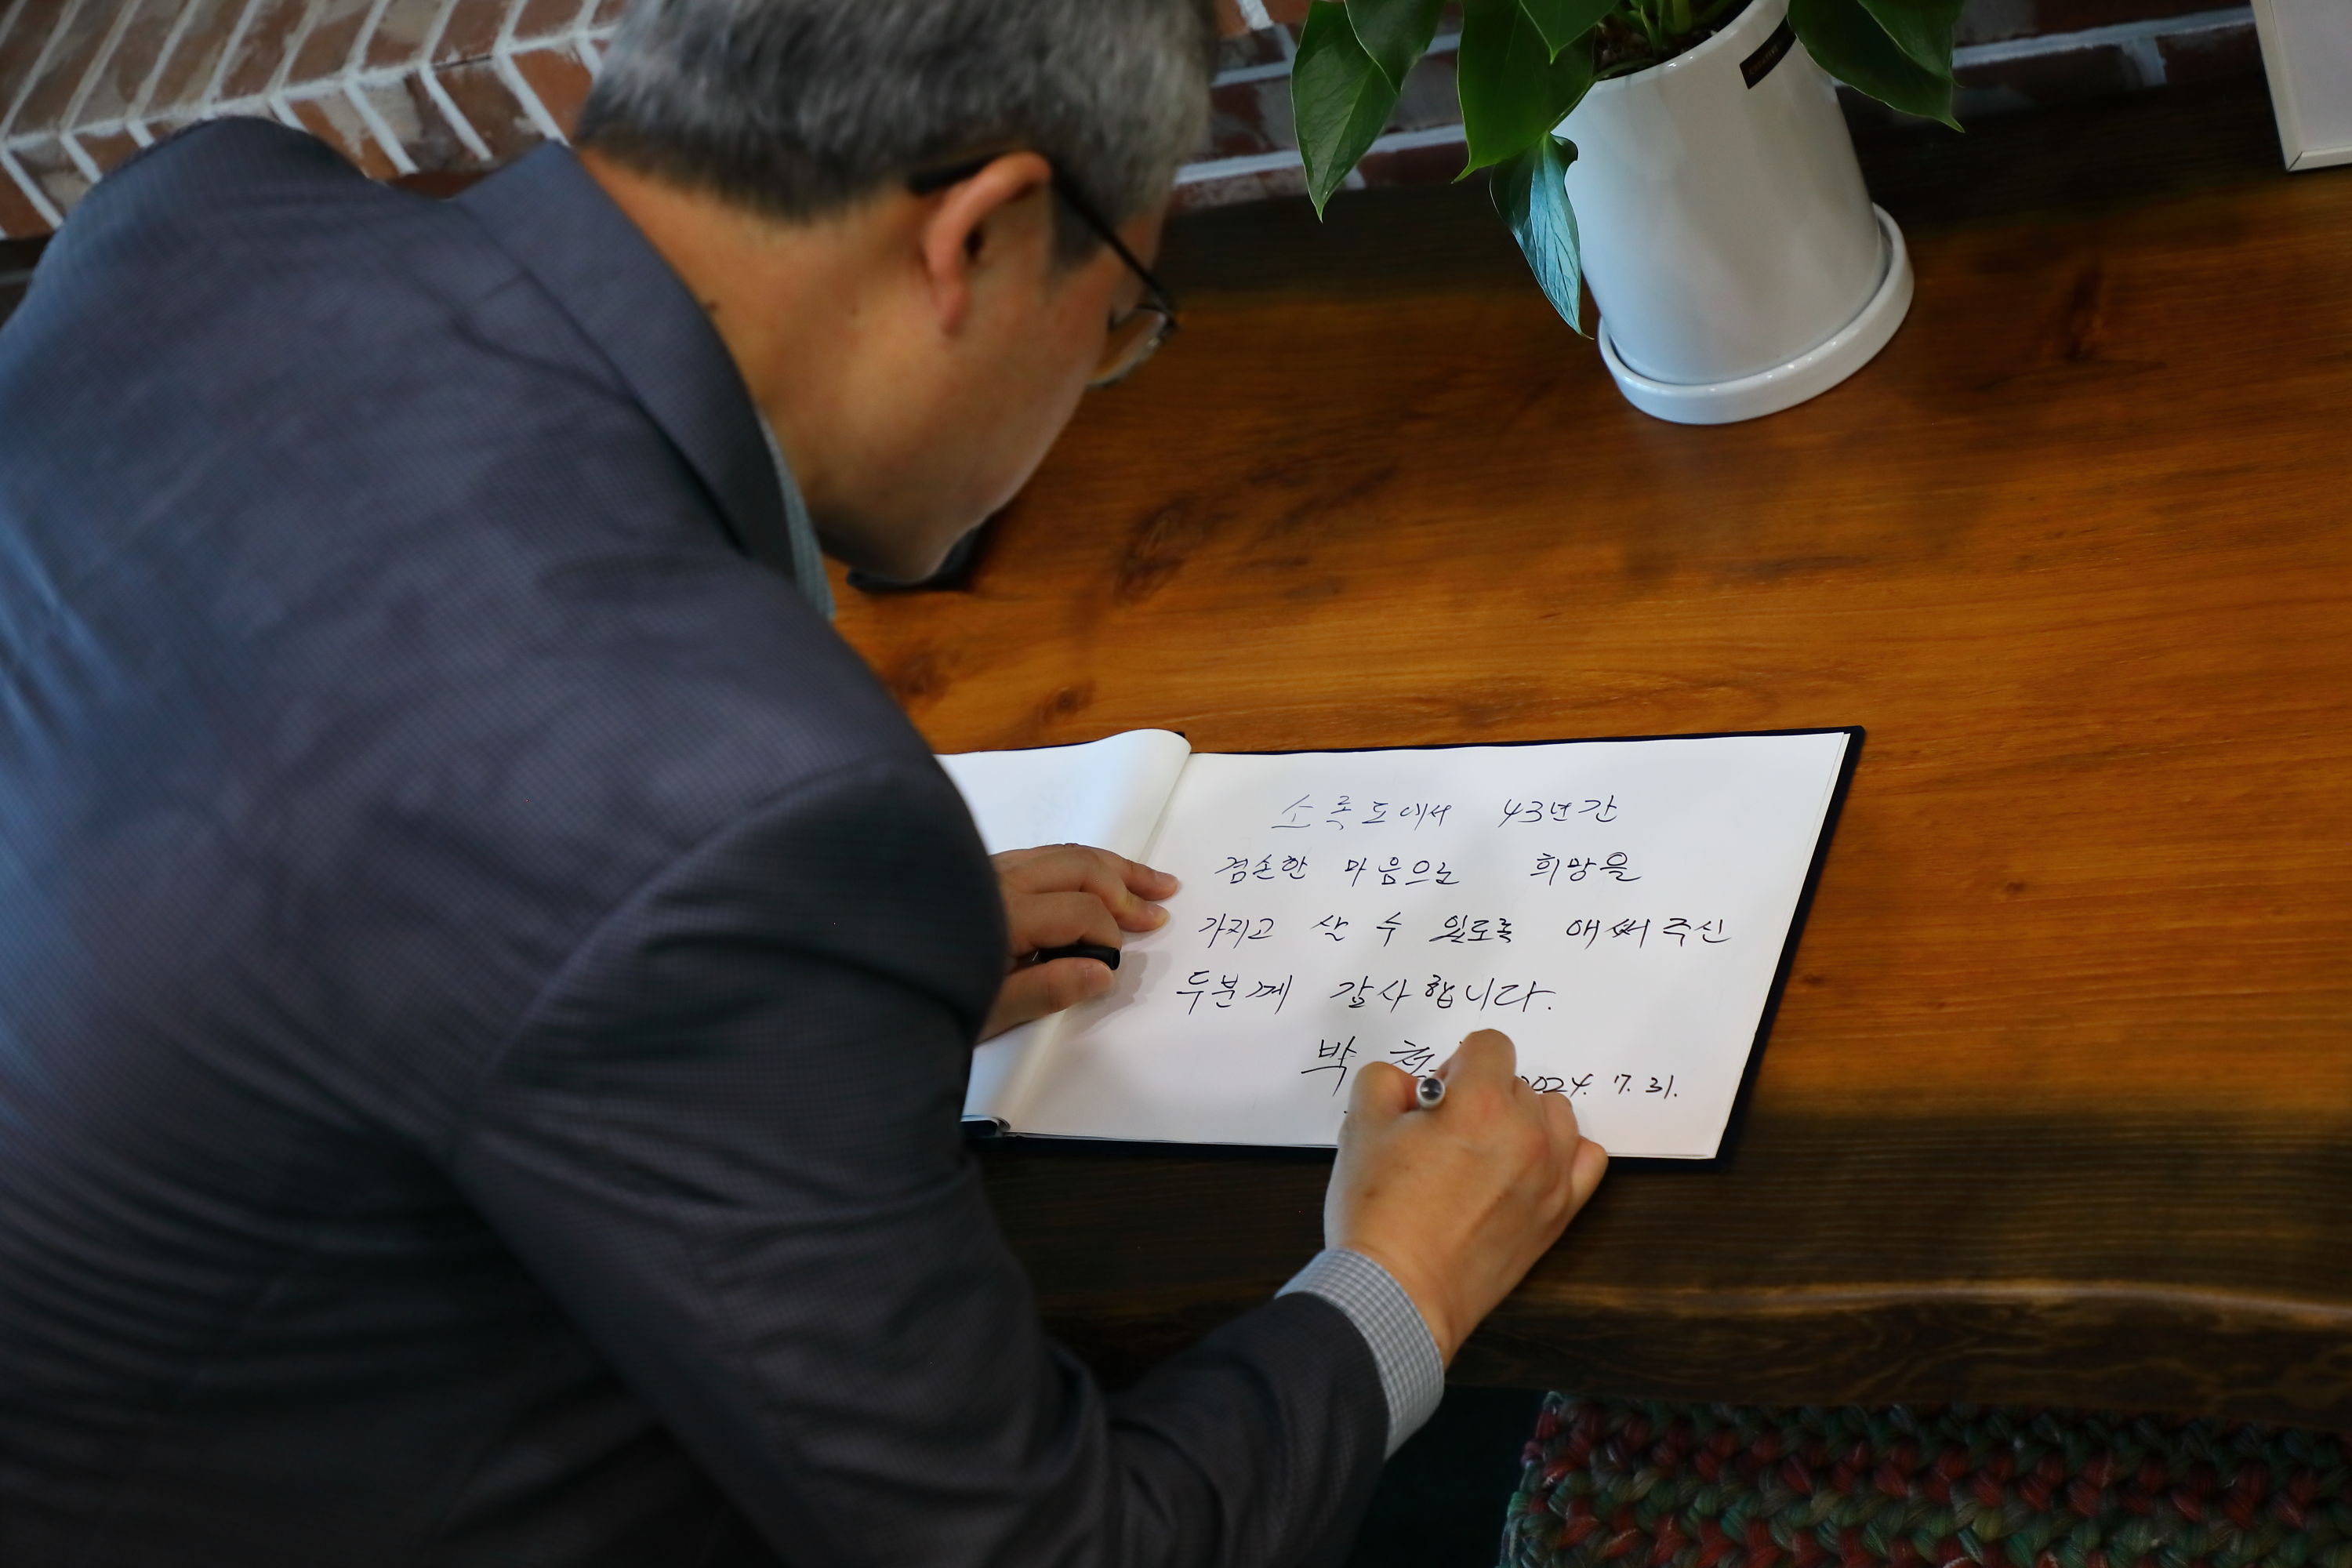 소록도에서 43년간
겸손한 마음으로 희망을
가지고 살 수 있도록 애써주신
두분께 감사합니다.
박 2024. 7. 31.